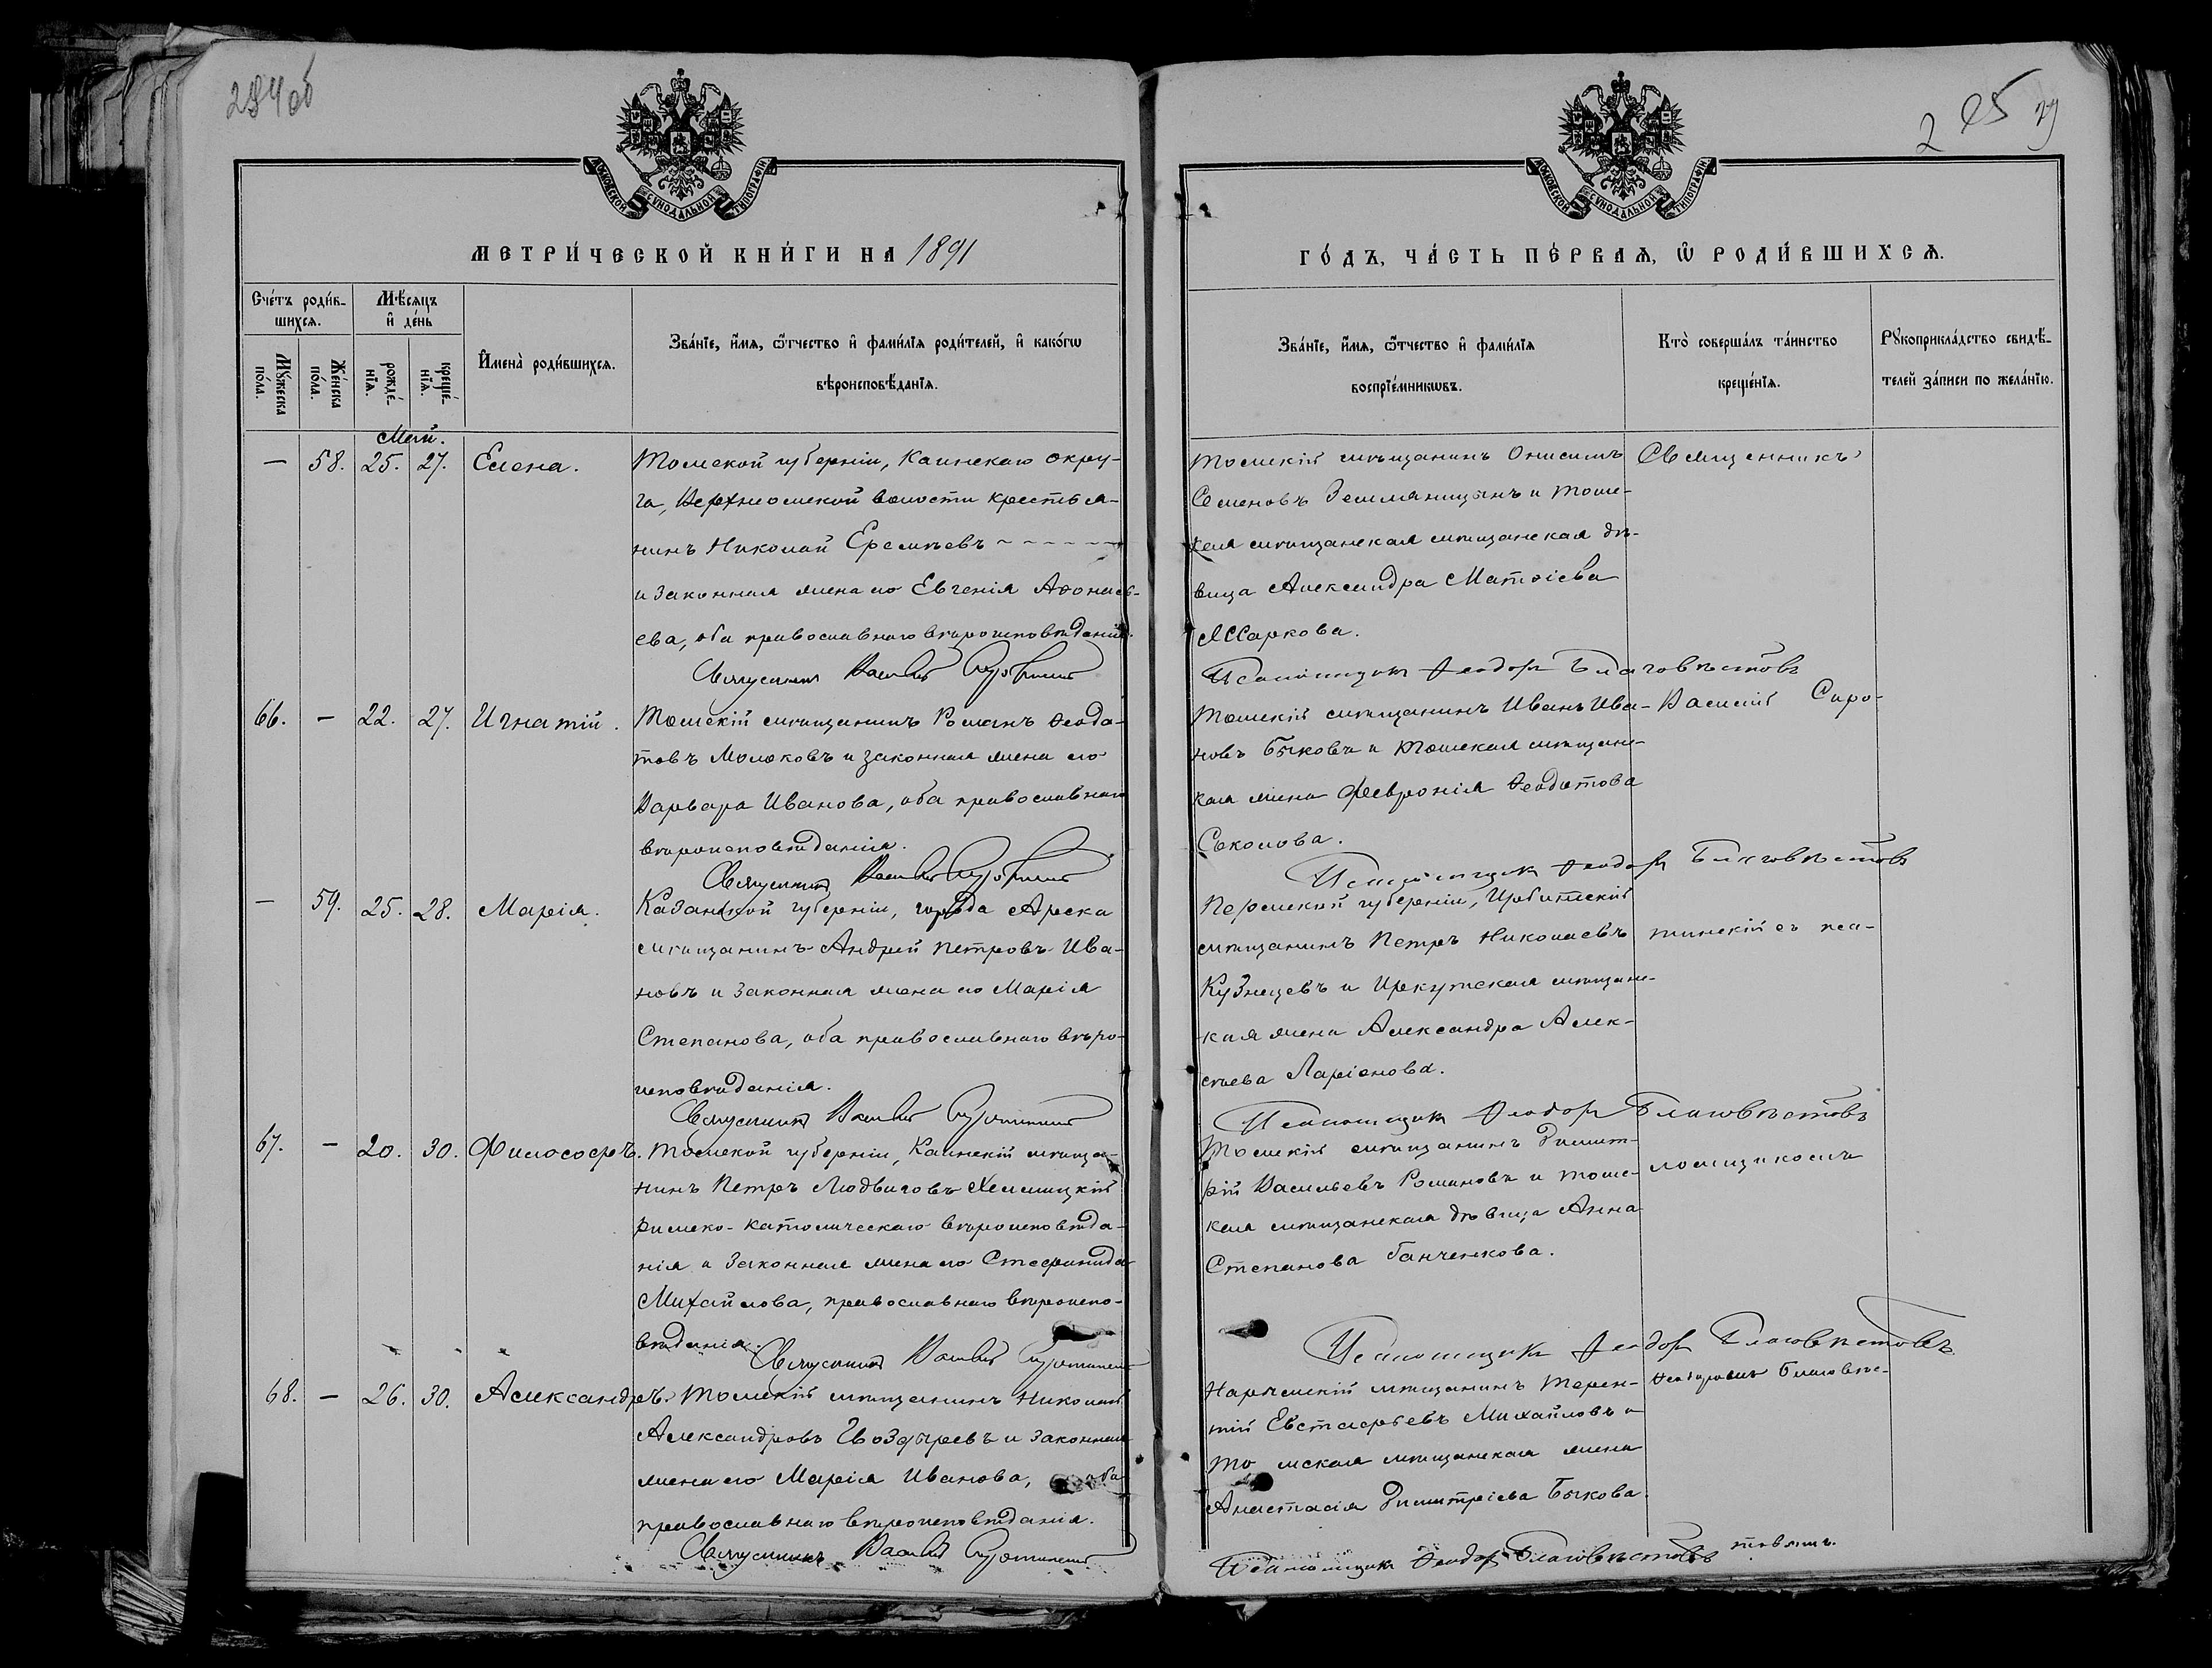 284об
МОСКОВСКОЙ СѴНОДАЛЬНОЙ ТИПОГРАФІИ
МЕТРИ́ЧЕСКОЙ КНИ́ГИ НА 1891
Сче́тъ роди́в-
шихсѧ.
Мѣ́сяцъ
и҆ де́нь
Мꙋ́жеска
по́ла.
Же́нска
по́ла.
рожде́-
нїѧ.
креще́-
нїѧ.
И҆мена̀ роди́вшихсѧ.
Зва́нїе, и҆́мѧ, ѻ҆́тчество и҆ фами́лїѧ роди́телей, и҆ како́гѡ
вѣроисповѣ́данїѧ.
Май.
— 58. 25. 27. Елена. Томской губерніи, Каинскаго окру-
га, Верхнеомской волости крестья-
нинъ Николай Еремѣевъ
и законная жена его Евгенія Аѳонась-
ева, оба православнаго вѣроисповѣданія.
Священникъ Василій Сиротинскій
66. — 22. 27. Игнатій. Томскій мѣщанинъ Романъ Ѳеодо-
товъ Молоковъ и законная жена его
Варвара Иванова, оба православнаго
вѣроисповѣданія.
Священникъ Василій Сиротинскій
— 59. 25. 28. Марія. Казанской губерніи, города Арска
мѣщанинъ Андрей Петровъ Ива-
новъ и законная жена его Марія
Степанова, оба православнаго вѣро-
исповѣданія.
Священникъ Василій Сиротинскій
67. — 20. 30. Философъ. Томской губерніи, Каинскій мѣща-
нинъ Петръ Людвиговъ Хелмицкій
римско-католическаго вѣроисповѣда-
нія и законная жена его Стефанида
Михайлова, православнаго вѣроиспо-
вѣданія.
Священникъ Василій Сиротинскій
68. — 26. 30. Александръ. Томскій мѣщанинъ Николай
Александровъ Гвоздыревъ и законная
жена его Марія Иванова, оба
православнаго вѣроисповѣданія.
Священникъ Василій Сиротинскій
МОСКОВСКОЙ СѴНОДАЛЬНОЙ ТИПОГРАФІИ
ГО́ДЪ, ЧА́СТЬ ПЕ́РВАѦ, Ѡ҆ РОДИ́ВШИХСѦ.
Зва́нїе, и҆́мѧ, ѻ҆́тчество и҆ фами́лїѧ
воспрїе́мникѡвъ.
Кто̀ соверша́лъ та́инство
креще́нїѧ.
Рꙋкоприкла́дство свидѣ́-
телей за́писи по жела́нїю.
Томскій мѣщанинъ Онисимъ Священникъ
Семеновъ Земляницынъ и томс-
кая мѣщанская мѣщанская дѣ-
вица Александра Матѳіева
Маркова.
Псаломщикъ Ѳеодоръ Благовѣстовъ
Томскій мѣщанинъ Иванъ Ива- Василій Сиро-
новъ Быковъ и томская мѣщанс-
кая жена Февронія Ѳеодотова
Соколова.
Псаломщикъ Ѳеодоръ Благовѣстовъ
Пермской губерніи, Ирбитскій
мѣщанинъ Петръ Николаевъ тинскій съ пса-
Кузнецевъ и Иркутская мѣщанс-
кая жена Александра Алек-
сѣева Ларіонова.
Псаломщикъ Ѳеодоръ Благовѣстовъ
Томскій мѣщанинъ Димит-
рій Васильевъ Романовъ и томс- ломщикомъ
кая мѣщанская дѣвица Анна
Степанова Ганченкова.
Псаломщикъ Ѳеодоръ Благовѣстовъ
Нарымскій мѣщанинъ Терен- Ѳеодоромъ Благовѣс-
тій Евстафьевъ Михайловъ и
томская мѣщанская жена
Анастасія Димитріева Быкова.
товымъ.
Псаломщикъ Ѳеодоръ Благовѣстовъ